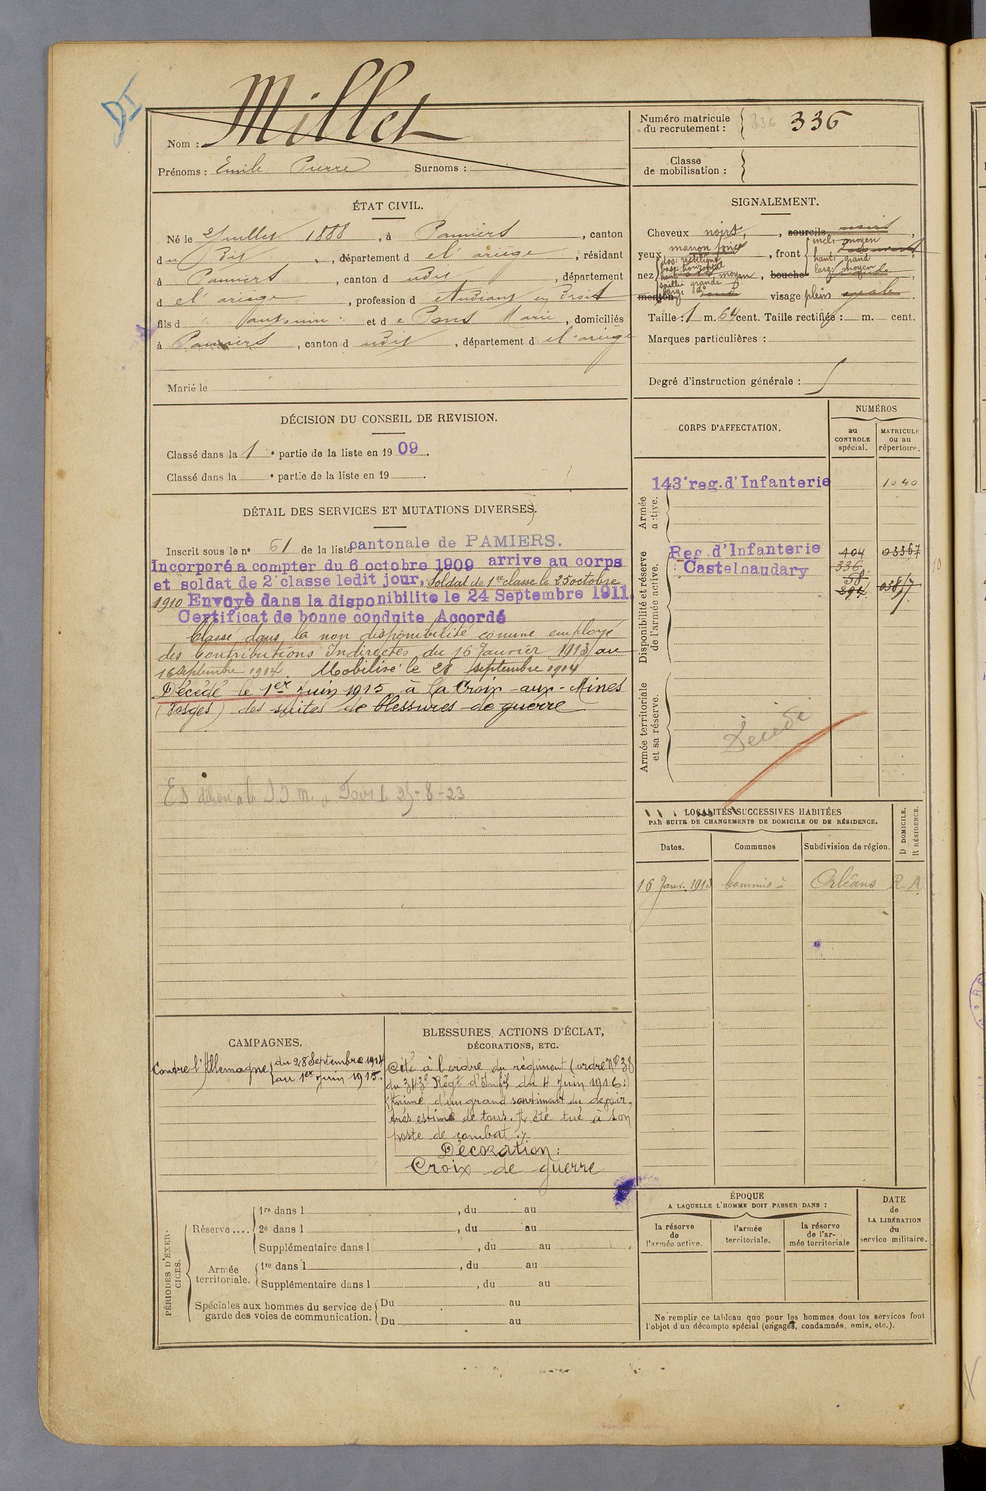 DI
Nom : Millet
Prénoms : Emile Pierre Surnoms :
Numéro matricule du recrutement : 336 336
Classe de mobilisation :
ÉTAT CIVIL.
Né le 2 Juillet 1888, à Pamiers, canton
du dit, département de l'ariège, résidant
à Pamiers, canton du dit, département
d el ariège, profession d'étudiant en Droit
fils d Antonin et de Pons Marie, domiciliés
à Pamiers, canton du dit, département de l'ariège
Marié le
SIGNALEMENT.
Cheveux noirs, sourcils noirs
yeux marron foncé, front incl: moyen
haut: grand
larg: moyenne
nez dos: rectiligne
base: horizontal
haut: moyen, bouche
saillie: grande
larg: do
menton visage plein ovale
Taille : 1 m. 64 cent. Taille rectifiée : m. cent.
Marques particulières :
Degré d'instruction générale :
DÉCISION DU CONSEIL DE REVISION.
Classé dans la 1e partie de la liste en 1909.
Classé dans la e partie de la liste en 19
DÉTAIL DES SERVICES ET MUTATIONS DIVERSES.
Inscrit sous le no 61 de la liste cantonale de PAMIERS.
Incorporé a compter du 6 octobre 1909 arrive au corps
et soldat de 2e classe ledit jour. Soldat de 1re classe le 25 octobre
1910 Envoyé dans la disponibilite le 24 Septembre 1911.
Certificat de bonne conduite Accordé
Classé dans la non disponibilité comme employé
des Contributions Indirectes du 16 Janvier 1913 au
16 Septembre 1914. Mobilisé le 28 septembre 1914
Décédé le 1er Juin 1915 à la Croix-aux-Mines
(Vosges) des suites de blessures de guerre
25-8-23
CORPS D'AFFECTATION.
NUMÉROS
au CONTROLE spécial.
MATRICULE ou au répertoire.
Armée active.
143e reg. d'Infanterie 1040
Disponibilité et réserve de l'armée active.
Reg. d'Infanterie 404 03367
Castelnaudary 336
Armée territoriale et sa réserve.
Décédé
LOCALITÉS SUCCESSIVES HABITÉES
PAR SUITE DE CHANGEMENTS DE DOMICILE OU DE RÉSIDENCE.
Dates. Communes Subdivision de région. D DOMICILE. R RÉSIDENCE.
16 Janv. 1913 Commis à Orléans R. A
CAMPAGNES.
Contre l'Allemagne du 28 Septembre 1914
au 1er juin 1915.
BLESSURES, ACTIONS D'ÉCLAT,
DÉCORATIONS, ETC.
Cité à l'ordre du régiment (ordre N° 38
du 343e Régt d'Inf du 4 Juin 1916:)
Animé d'un grand sentiment du devoir,
très estimé de tous. A été tué à son
poste de combat.
Décoration:
Croix de guerre
PÉRIODES D'EXERCICES.
Réserve .... 1re dans l , du au
2e dans l , du au
Supplémentaire dans l , du au
Armée territoriale. 1re dans l , du au
Supplémentaire dans l , du au
Spéciales aux hommes du service de garde des voies de communication. Du au
Du au
ÉPOQUE
A LAQUELLE L'HOMME DOIT PASSER DANS :
la réserve de l'armée active.
l'armée territoriale.
la réserve de l'armée territoriale
DATE de LA LIBÉRATION du service militaire.
Ne remplir ce tableau que pour les hommes dont les services font
l'objet d'un décompte spécial (engagés, condamnés, omis, etc.).